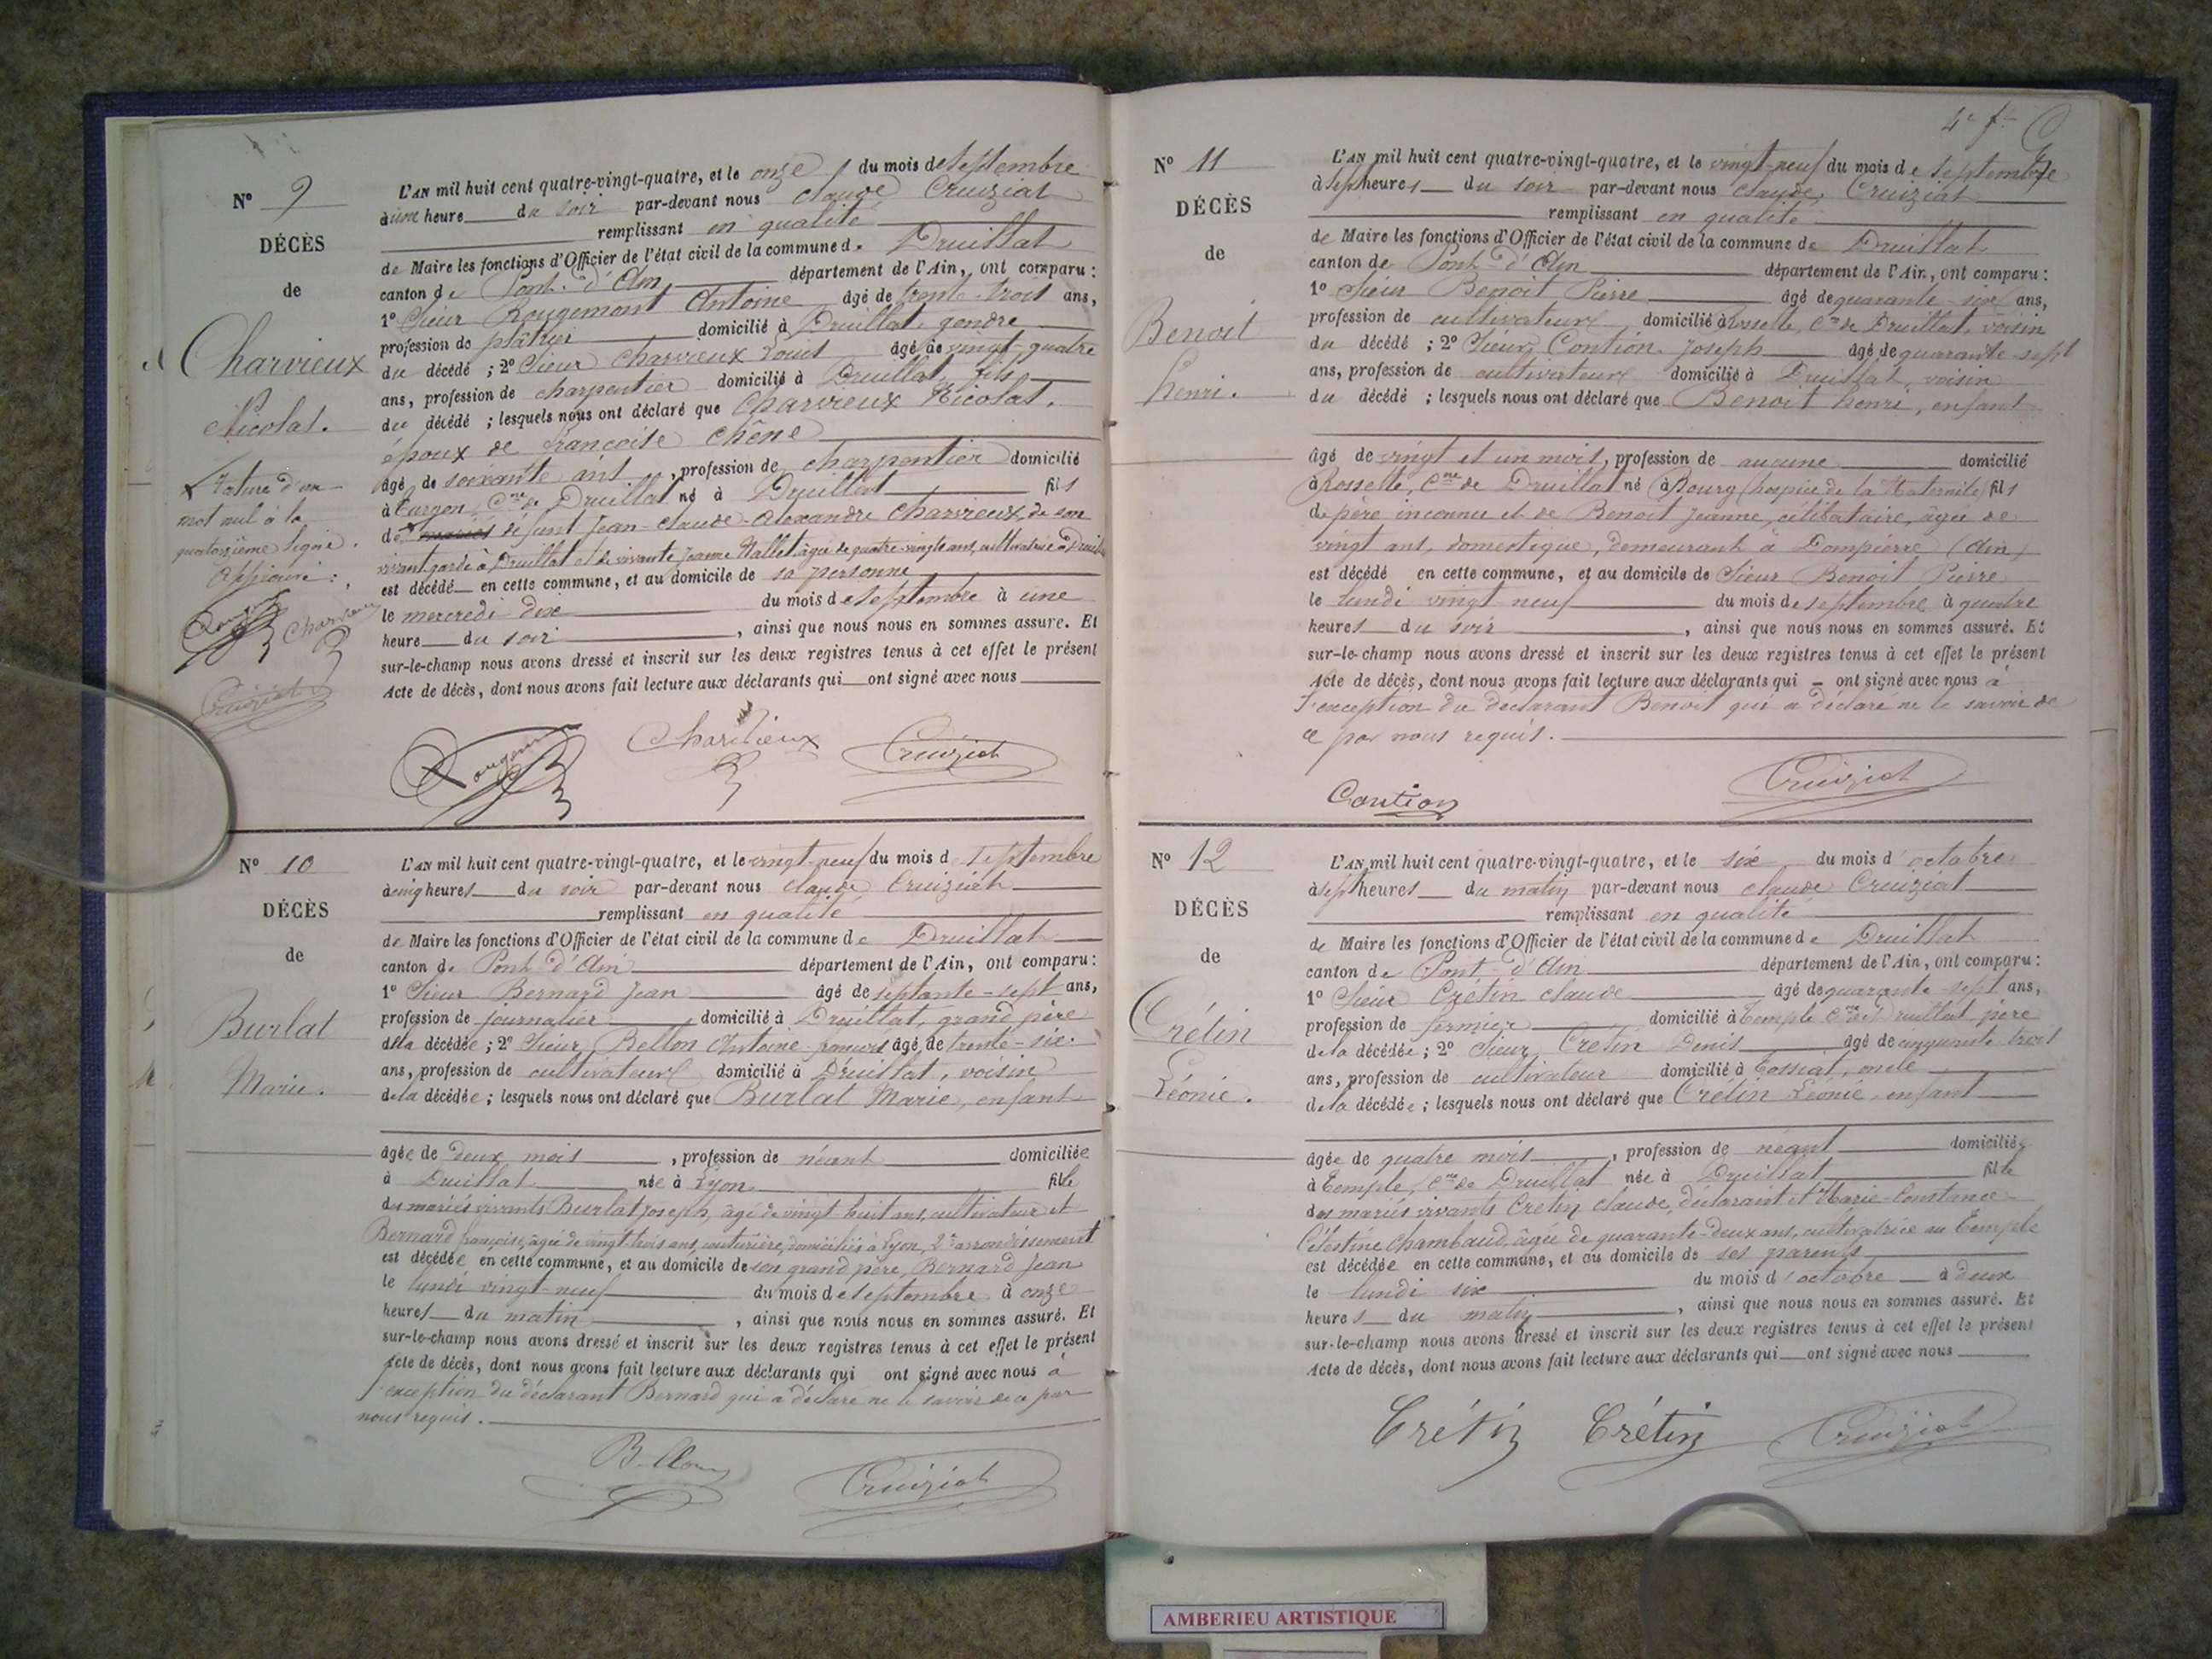 N° 9
DÉCÈS
de
Charvieux
Nicolas.
Rature d'un
mot nul à la
quatorzième ligne.
Approuvé :
Charvieux
Cruiziat
L'AN mil huit cent quatre-vingt-quatre, et le onze du mois de septembre
à une heure du soir par-devant nous Claude Cruiziat
remplissant en qualité
de Maire les fonctions d'Officier de l'état civil de la commune de Druillat
canton de Pont-d'Ain département de l'Ain, ont comparu :
1° Sieur Rougemont Antoine âgé de trente-trois ans,
profession de plâtrier domicilié à Druillat, gendre
du décédé ; 2° Sieur Charvieux Louis âgé de vingt quatre
ans, profession de charpentier domicilié à Druillat, fils
du décédé ; lesquels nous ont déclaré que Charvieux Nicolas,
époux de Francoise Chêne
âgé de soixante ans, profession de charpentier domicilié
à Turgon, Cne de Druillat né à Druillat fils
de mariés défunt Jean-Claude-Alexandre Charvieux, de son
vivant garde à Druillat et de vivante Jeanne Mallet âgée de quatre-vingts ans, cultivatrice à Druillat
est décédé en cette commune, et au domicile de sa personne
le mercredi dix du mois de septembre à une
heure du soir, ainsi que nous nous en sommes assuré. Et
sur-le-champ nous avons dressé et inscrit sur les deux registres tenus à cet effet le présent
Acte de décès, dont nous avons fait lecture aux déclarants qui ont signé avec nous
Rougemont Charvieux Cruiziat
N° 10
DÉCÈS
de
Burlat
Marie.
L'AN mil huit cent quatre-vingt-quatre, et le vingt-neuf du mois d septembre
à cinq heures du soir par-devant nous Claude Cruiziat
remplissant en qualité
de Maire les fonctions d'Officier de l'état civil de la commune de Druillat
canton de Pont d'Ain département de l'Ain, ont comparu :
1° Sieur Bernard Jean âgé de septante-sept ans,
profession de journalier domicilié à Druillat, grand père
de la décédée ; 2° Sieur Bellon Antoine François âgé de trente-six
ans, profession de cultivateur domicilié à Druillat, voisin
de la décédée ; lesquels nous ont déclaré que Burlat Marie, enfant
âgée de deux mois, profession de néant domiciliée
à Druillat née à Lyon fille
des mariés vivants Burlat Joseph, âgé de vingt-huit ans, cultivateur et
Bernard françoise, âgée de vingt-trois ans, couturière, domiciliés à Lyon, 2e arrondissement
est décédée en cette commune, et au domicile de son grand père, Bernard Jean
le lundi vingt-neuf du mois de septembre à onze
heures du matin, ainsi que nous nous en sommes assuré. Et
sur-le-champ nous avons dressé et inscrit sur les deux registres tenus à cet effet le présent
Acte de décès, dont nous avons fait lecture aux déclarants qui ont signé avec nous à
l'exception du déclarant Bernard qui a déclaré ne le savoir de ce par
nous requis.
Bellon Cruiziat
4e ft
N° 11
DÉCÈS
de
Benoit
henri.
L'AN mil huit cent quatre-vingt-quatre, et le vingt-neuf du mois de septembre
à sept heures du soir par-devant nous Claude Cruiziat
remplissant en qualité
de Maire les fonctions d'Officier de l'état civil de la commune de Druillat
canton de Pont-d'Ain département de l'Ain, ont comparu :
1° Sieur Benoit Pierre âgé de quarante-six ans,
profession de cultivateur domicilié à Rosselle, Cne de Druillat, voisin
du décédé ; 2° Sieur Contion Joseph âgé de quarante-sept
ans, profession de cultivateur domicilié à Druillat, voisin
du décédé ; lesquels nous ont déclaré que Benoit henri, enfant
âgé de vingt et un mois, profession de aucune domicilié
à Rosselle, Cne de Druillat né à Bourg (hospice de la Maternité) fils
de père inconnu et de Benoit Jeanne, célibataire, âgée de
vingt ans, domestique, demeurant à Dompierre (Ain)
est décédé en cette commune, et au domicile de Sieur Benoit Pierre
le lundi vingt-neuf du mois de septembre à quatre
heures du soir, ainsi que nous nous en sommes assuré. Et
sur-le-champ nous avons dressé et inscrit sur les deux registres tenus à cet effet le présent
Acte de décès, dont nous avons fait lecture aux déclarants qui ont signé avec nous à
l'exception du déclarant Benoit qui a déclaré ne le savoir de
ce par nous requis.
Contion Cruiziat
N° 12
DÉCÈS
de
Crétin
Léonie.
L'AN mil huit cent quatre-vingt-quatre, et le six du mois d'octobre
à sept heures du matin par-devant nous Claude Cruiziat
remplissant en qualité
de Maire les fonctions d'Officier de l'état civil de la commune de Druillat
canton de Pont-d'Ain département de l'Ain, ont comparu :
1° Sieur Crétin Claude âgé de quarante-sept ans,
profession de fermier domicilié à Temple Cne de Druillat père
de la décédée ; 2° Sieur Crétin Denis âgé de cinquante trois
ans, profession de cultivateur domicilié à Tossiat, oncle
de la décédée ; lesquels nous ont déclaré que Crétin Léonie, enfant
âgée de quatre mois, profession de néant domiciliée
à Temple, Cne de Druillat née à Druillat fille
des mariés vivants Crétin Claude, déclarant et Marie-Constance
Célestine Chambaud, âgée de quarante-deux ans, cultivatrice au Temple
est décédée en cette commune, et au domicile de ses parents
le lundi six du mois d'octobre à deux
heures du matin, ainsi que nous nous en sommes assuré. Et
sur-le-champ nous avons dressé et inscrit sur les deux registres tenus à cet effet le présent
Acte de décès, dont nous avons fait lecture aux déclarants qui ont signé avec nous
Crétin Crétin Cruiziat
AMBERIEU ARTISTIQUE